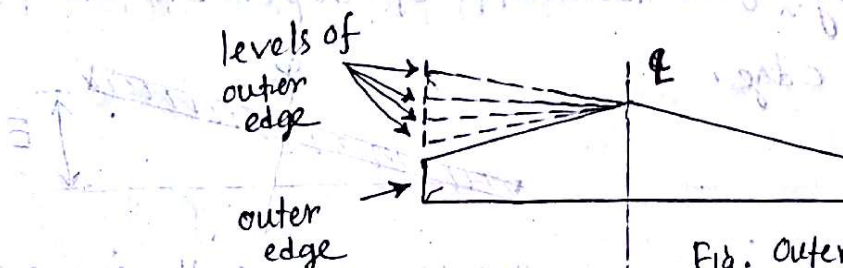 levels of
outer
edge
℄
outer
edge
Fig: Outer